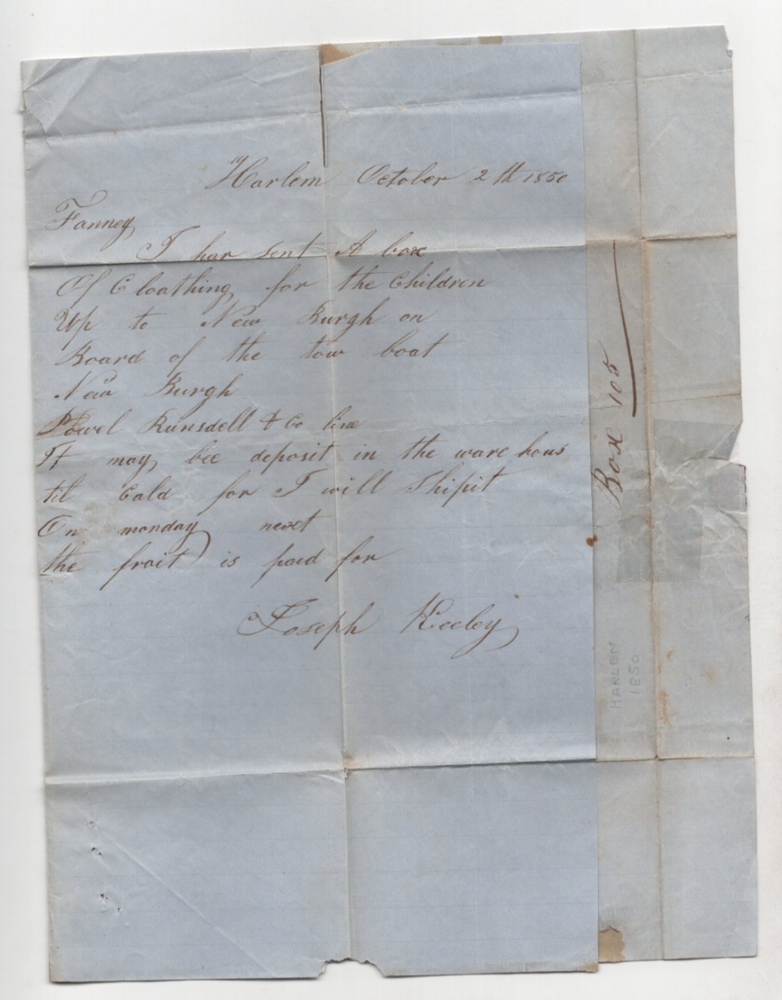 Harlem October 2 th 1850
Fanney
I har sent A box
Of Cloathing for the Children
Up to New Burgh on
Board of the tow boat
New Burgh
Powel Runsdell & Co line
It may bee deposit in the ware hous
til Cald for I will Shipit
On monday next
the frait is paid for
Joseph Keeley
Box 105
HARLEM
1850